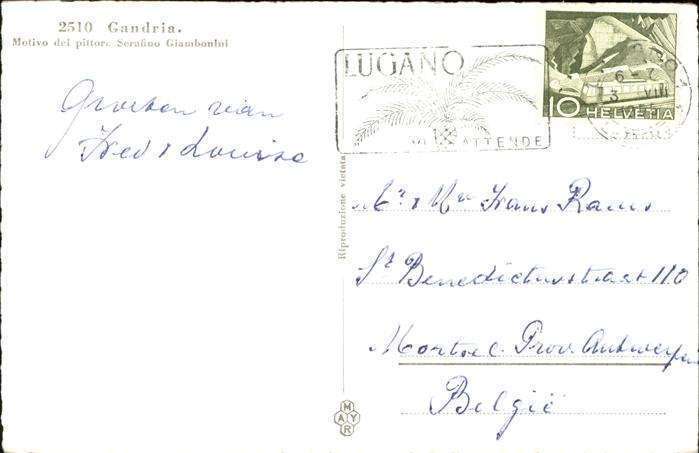 2510 Gandria.
Motivo del pittore Serafino Giambonini
Groeten van
Fred & Louise
Riproduzione vietata
MAYR
LUGANO
VI ATTENDE
10 HELVETIA
6-7
VIII
Mr & Mw Frans Rams
St Benedictusstraat 110
Mortsel Prov. Antwerpen
België